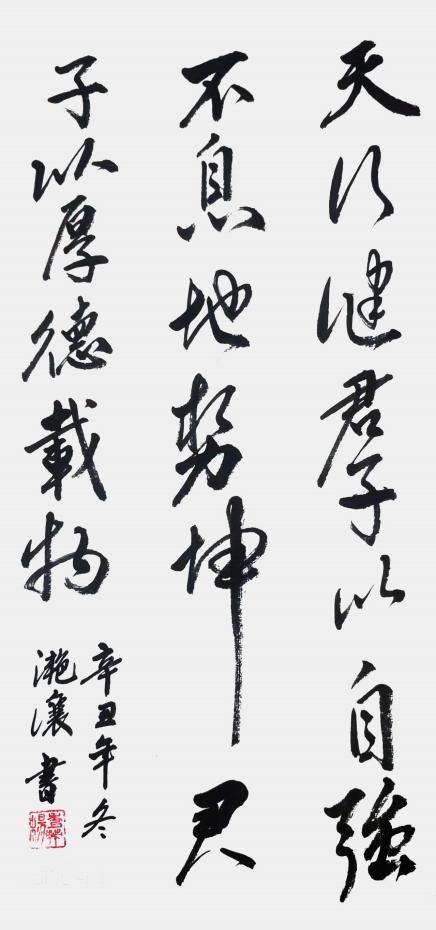 天行健君子以自強
不息地勢坤君
子以厚德載物
辛丑年冬
滟瀼書